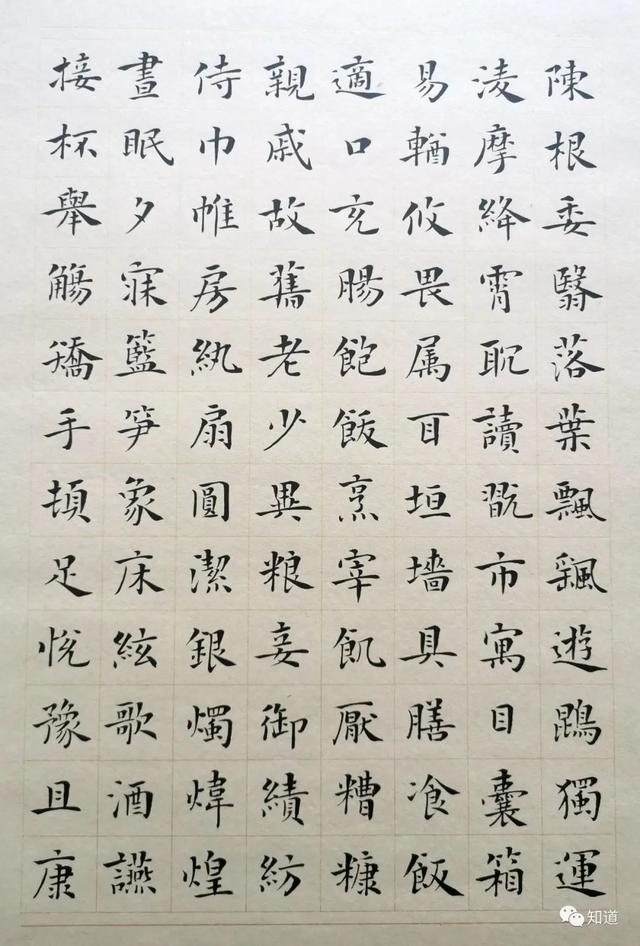 陳根委翳落葉飄颻遊鵾獨運
淩摩絳霄耽讀翫市寓目囊箱
易輶攸畏属耳垣墻具膳飡飯
適口充腸飽飫烹宰飢厭糟糠
親戚故舊老少異粮妾御績紡
侍巾帷房紈扇圓潔銀燭煒煌
晝眠夕寐籃笋象床絃歌酒讌
接杯舉觴矯手頓足悅豫且康
知道